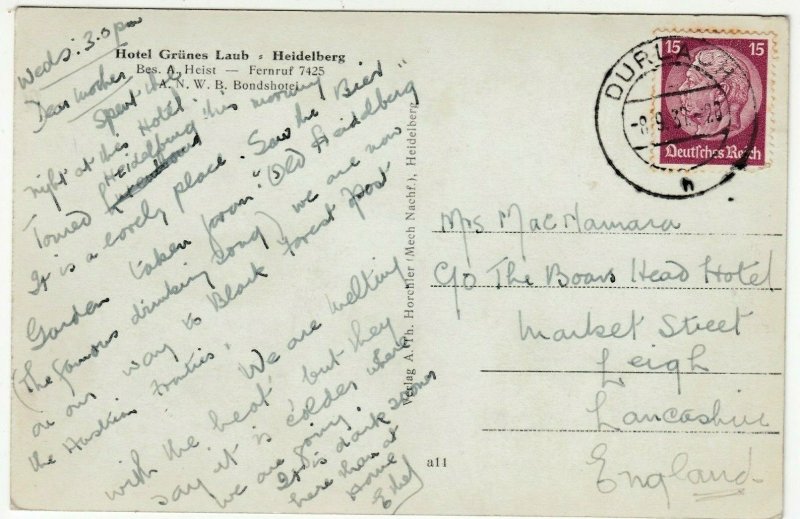 Weds: 3.0 pm
Hotel Grünes Laub - Heidelberg
Bes. A. Heist — Fernruf 7425
A. N. W. B. Bondshotel
Dear Mother,
Spent the
night at this Hotel.
Toured "Heidelburg" this morning
It is a lovely place. Saw the "Bier
Garden" taken from "Old Heidelberg
(The famous drinking song) we are now
on our way to Black Forest past
the Austrian
We are melting
with the heat, but they
say it is colder where
we are going.
It is dark sooner
here than at
Home
Ethel
Verlag A. Th. Horchler (Mech Nachf.), Heidelberg
a11
DURLACH
15 15
Deutsches Reich
h
Mrs MacNamara
C/o The Boars Head Hotel
Market Street
Leigh
Lancashire
England